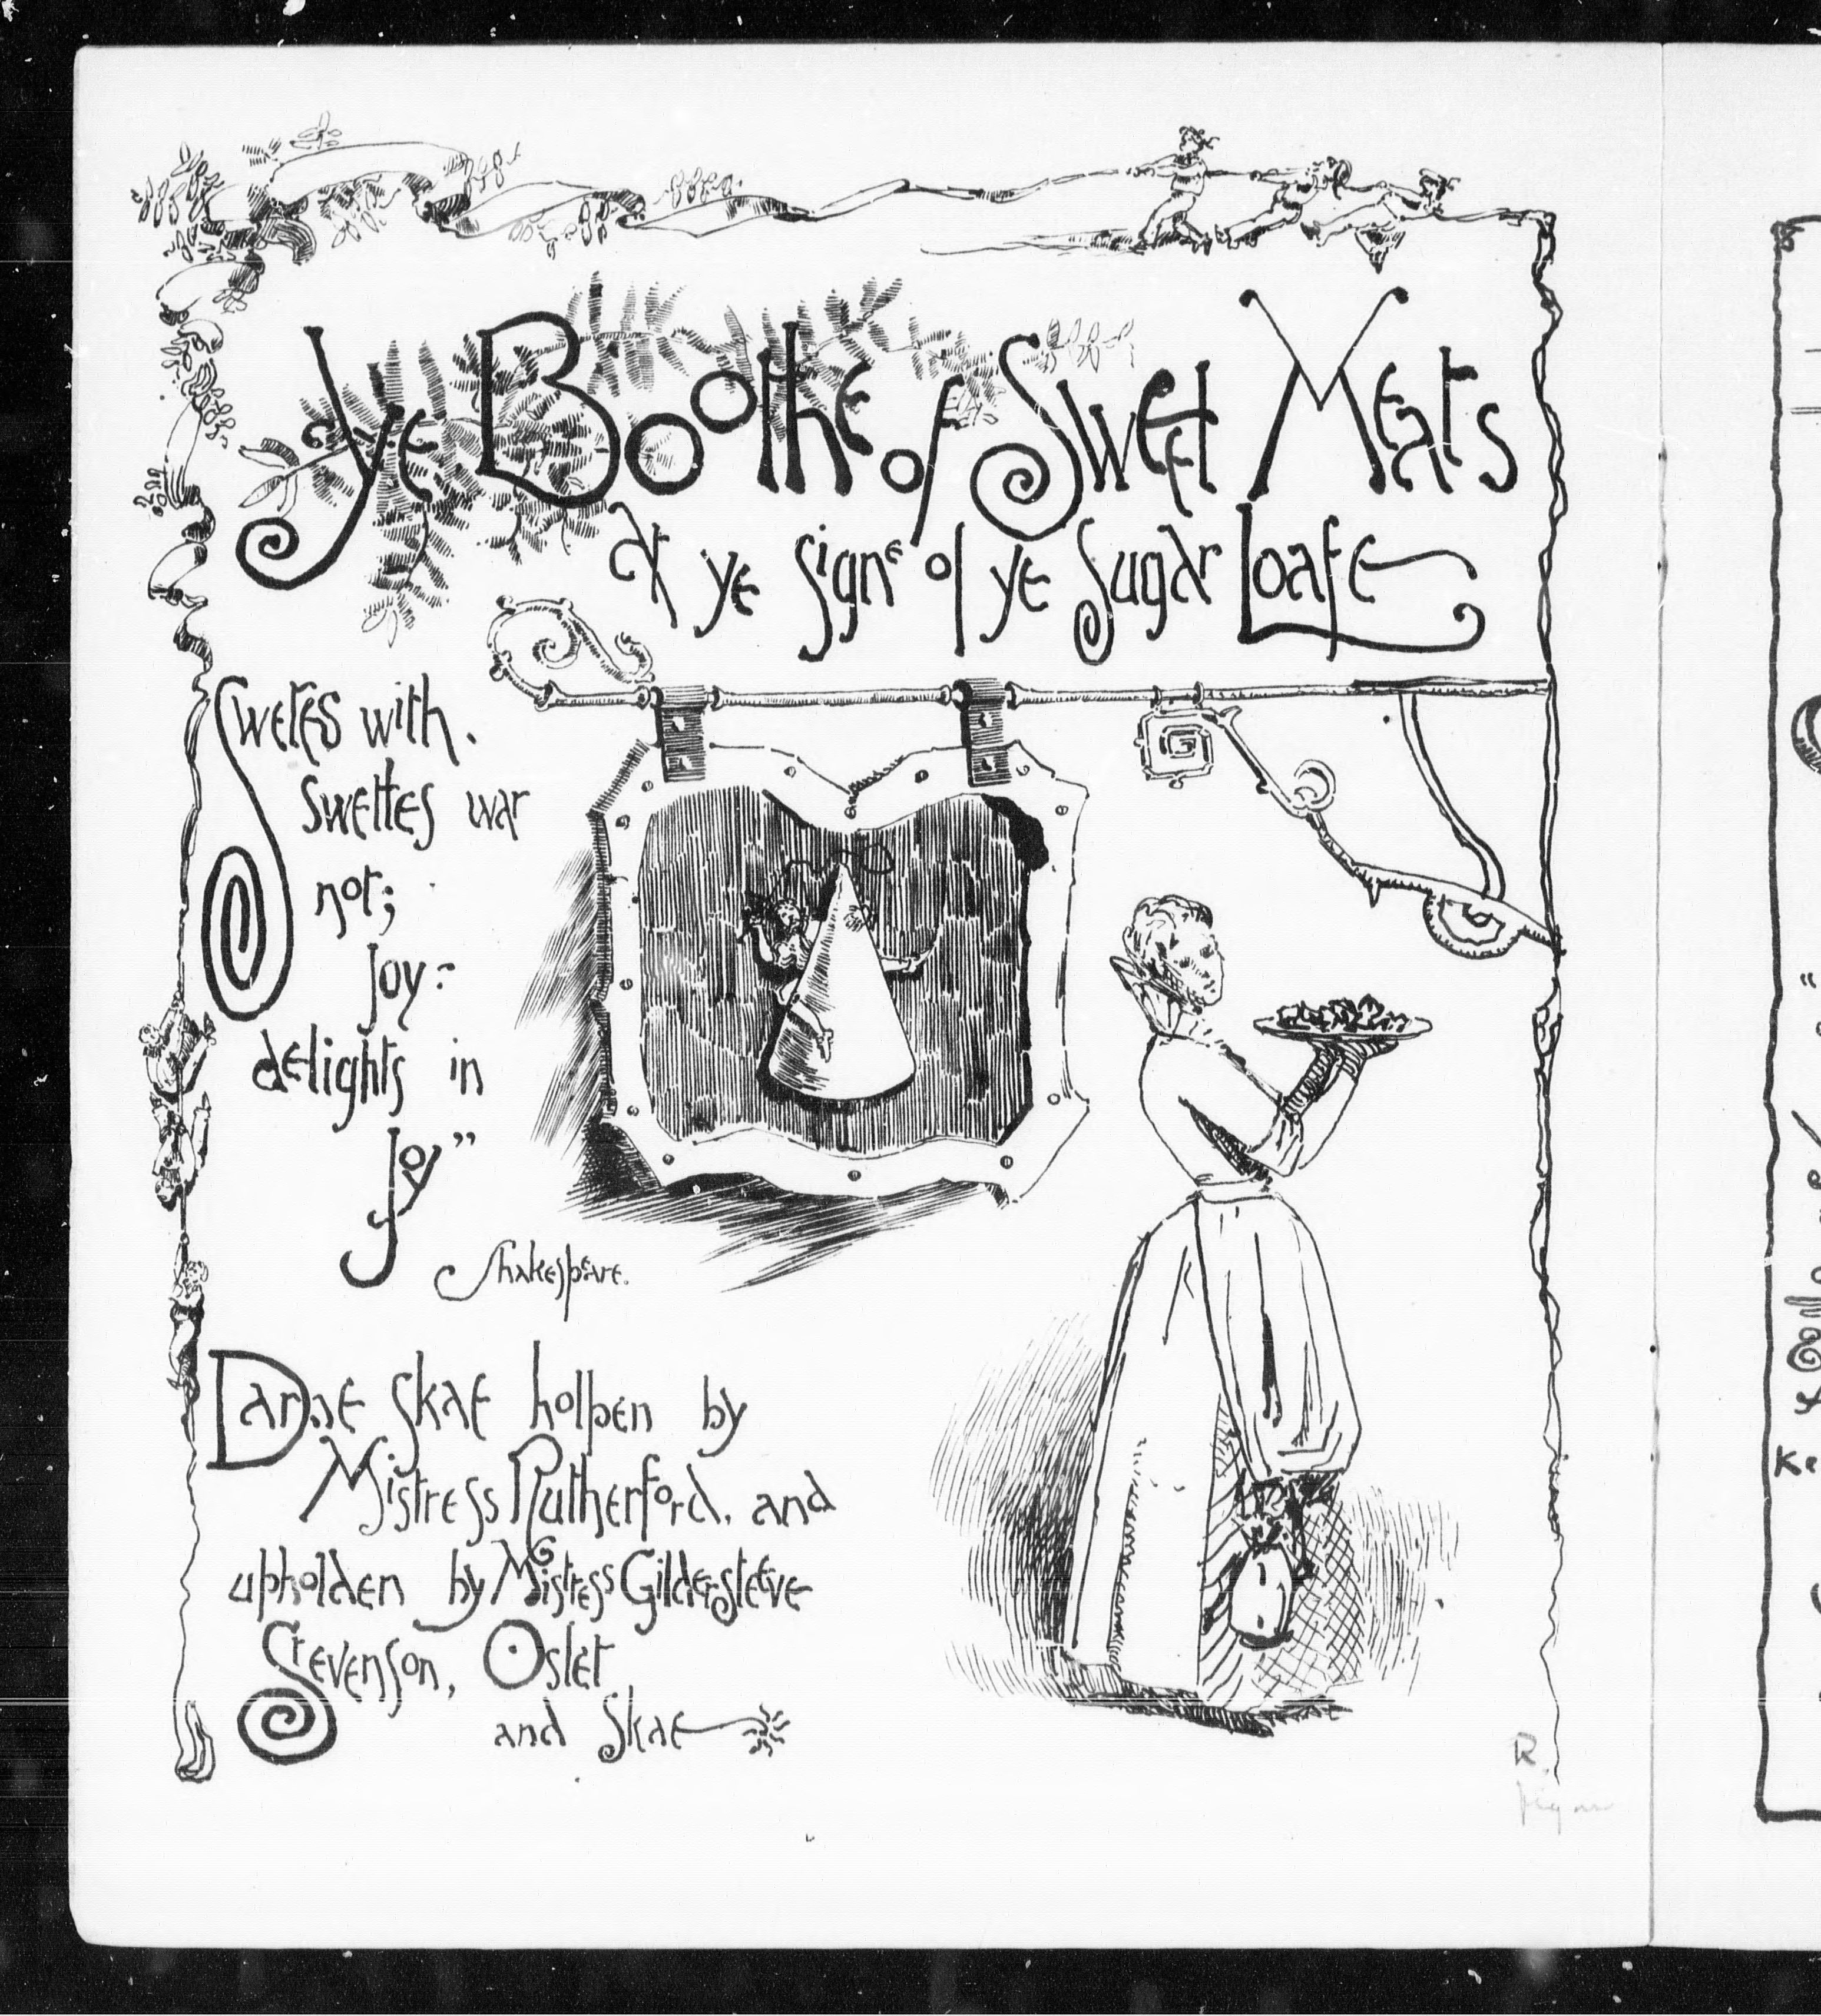 Ye Boothe of Sweet Meats
at ye signe of ye Sugar Loafe
Swetes with
swettes war
not;
Joy
delights in
Joy"
Shakespeare.
Dame Skae holpen by
Mistress Rutherford, and
upholden by Mistress Gildersleeve
Stevenson, Osler
and Skae
R.